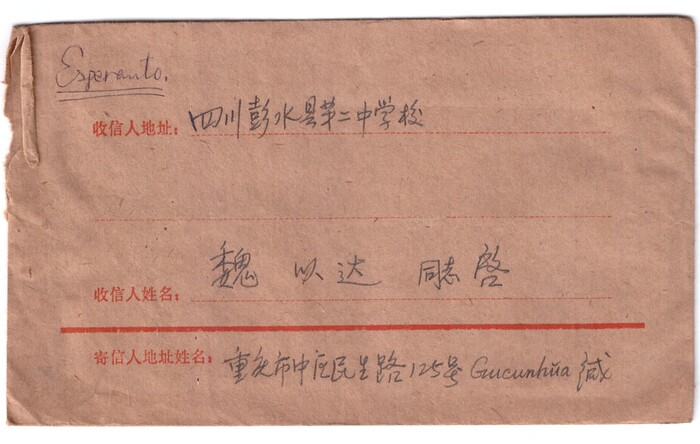 Esperanto.
收信人地址：四川彭水县第二中学校
收信人姓名：魏以达 同志 启
寄信人地址姓名：重庆市中区民生路125号 Gucunhŭa 缄